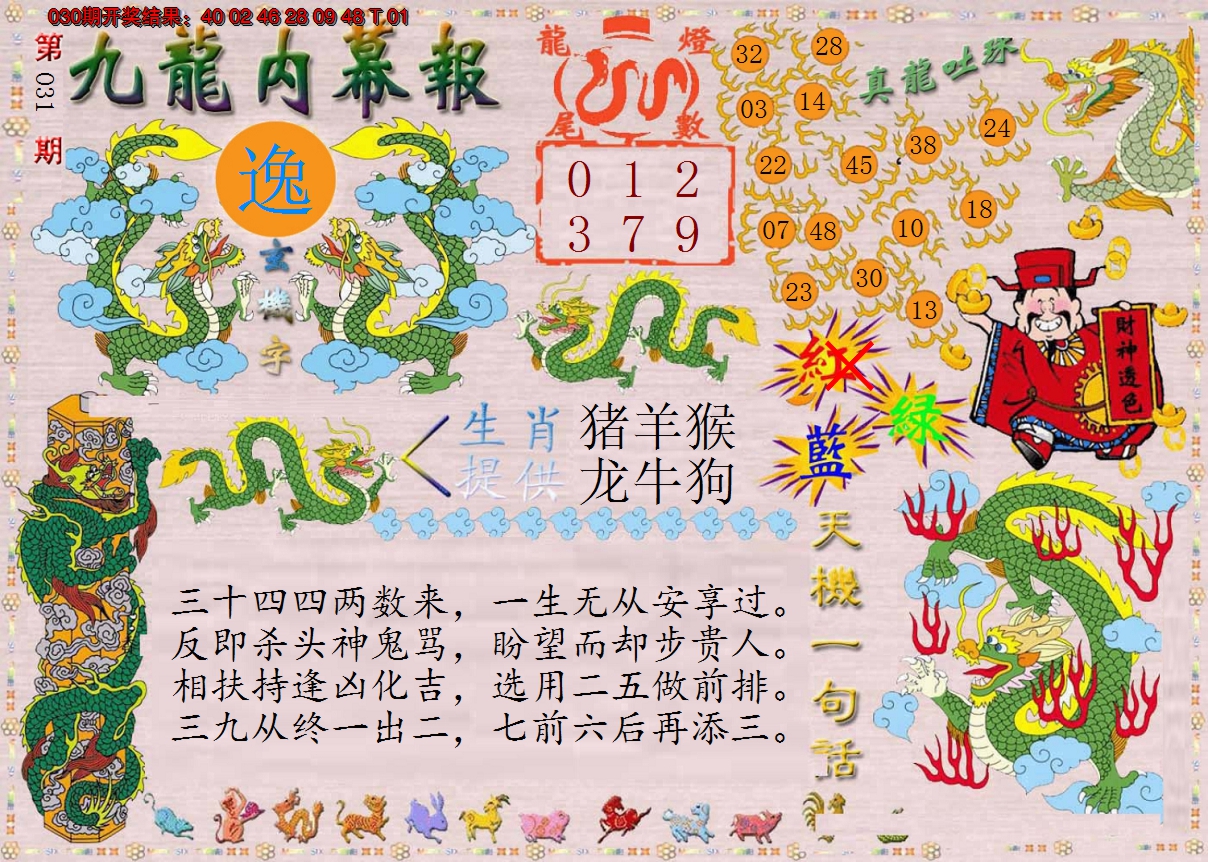 030期开奖结果：40 02 46 28 09 48 T 01
第031期
九龍内幕報
逸
玄機字
龍燈
尾數
0 1 2
3 7 9
真龍吐珠
32 28
03 14
22 45 38 24
07 48 10 18
23 30 13
紅
綠
藍
財神透色
生肖 猪羊猴
提供 龙牛狗
天機一句話
三十四四两数来，一生无从安享过。
反即杀头神鬼骂，盼望而却步贵人。
相扶持逢凶化吉，选用二五做前排。
三九从终一出二，七前六后再添三。